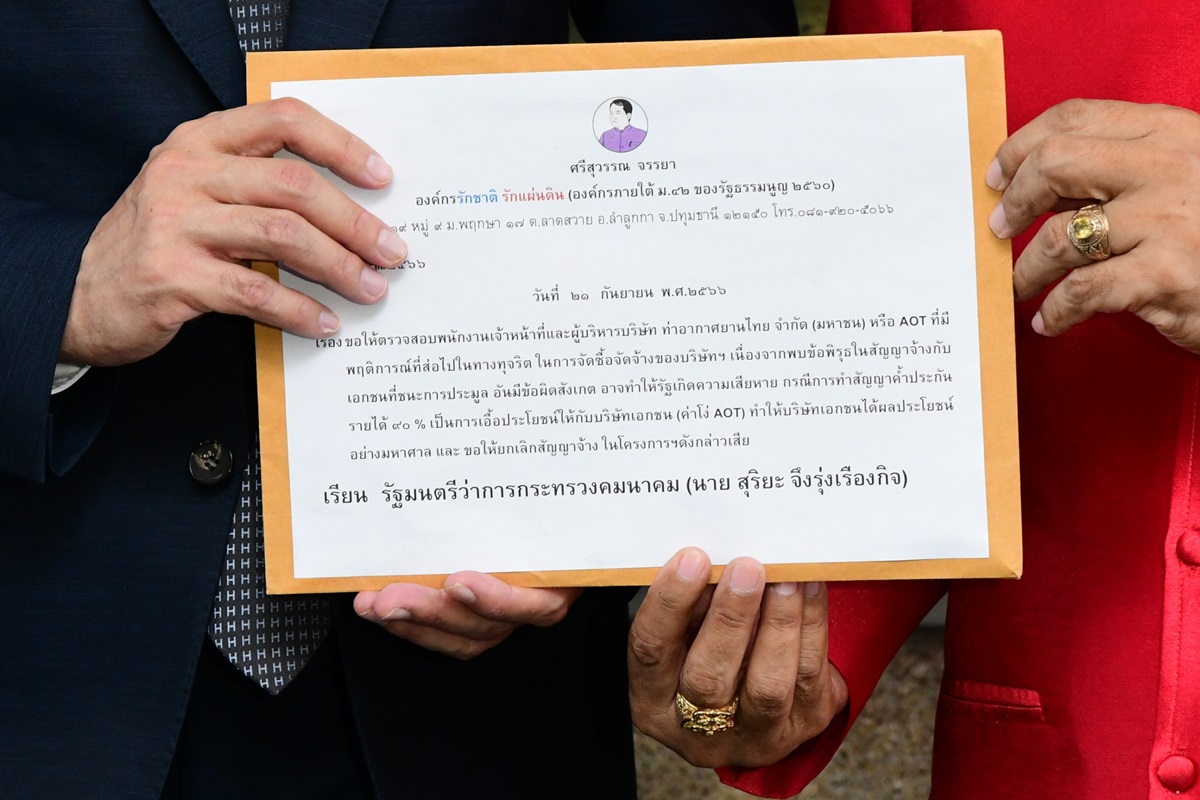 ศรีสุวรรณ จรรยา
องค์กรรักชาติ รักแผ่นดิน (องค์กรภายใต้ ม.๔๒ ของรัฐธรรมนูญ ๒๕๖๐)
๑๙ หมู่ ๙ ม.พฤกษา ๑๗ ต.ลาดสวาย อ.ลำลูกกา จ.ปทุมธานี ๑๒๑๕๐ โทร.๐๘๑-๙๒๐-๕๐๖๖
วันที่ ๒๑ กันยายน พ.ศ.๒๕๖๖
เรื่อง ขอให้ตรวจสอบพนักงานเจ้าหน้าที่และผู้บริหารบริษัท ท่าอากาศยานไทย จำกัด (มหาชน) หรือ AOT ที่มี
พฤติการณ์ที่ส่อไปในทางทุจริต ในการจัดซื้อจัดจ้างของบริษัทฯ เนื่องจากพบข้อพิรุธในสัญญาจ้างกับ
เอกชนที่ชนะการประมูล อันมีข้อผิดสังเกต อาจทำให้รัฐเกิดความเสียหาย กรณีการทำสัญญาค้ำประกัน
รายได้ ๙๐ % เป็นการเอื้อประโยชน์ให้กับบริษัทเอกชน (ค่าโง่ AOT) ทำให้บริษัทเอกชนได้ผลประโยชน์
อย่างมหาศาล และ ขอให้ยกเลิกสัญญาจ้าง ในโครงการฯดังกล่าวเสีย
เรียน รัฐมนตรีว่าการกระทรวงคมนาคม (นาย สุริยะ จึงรุ่งเรืองกิจ)